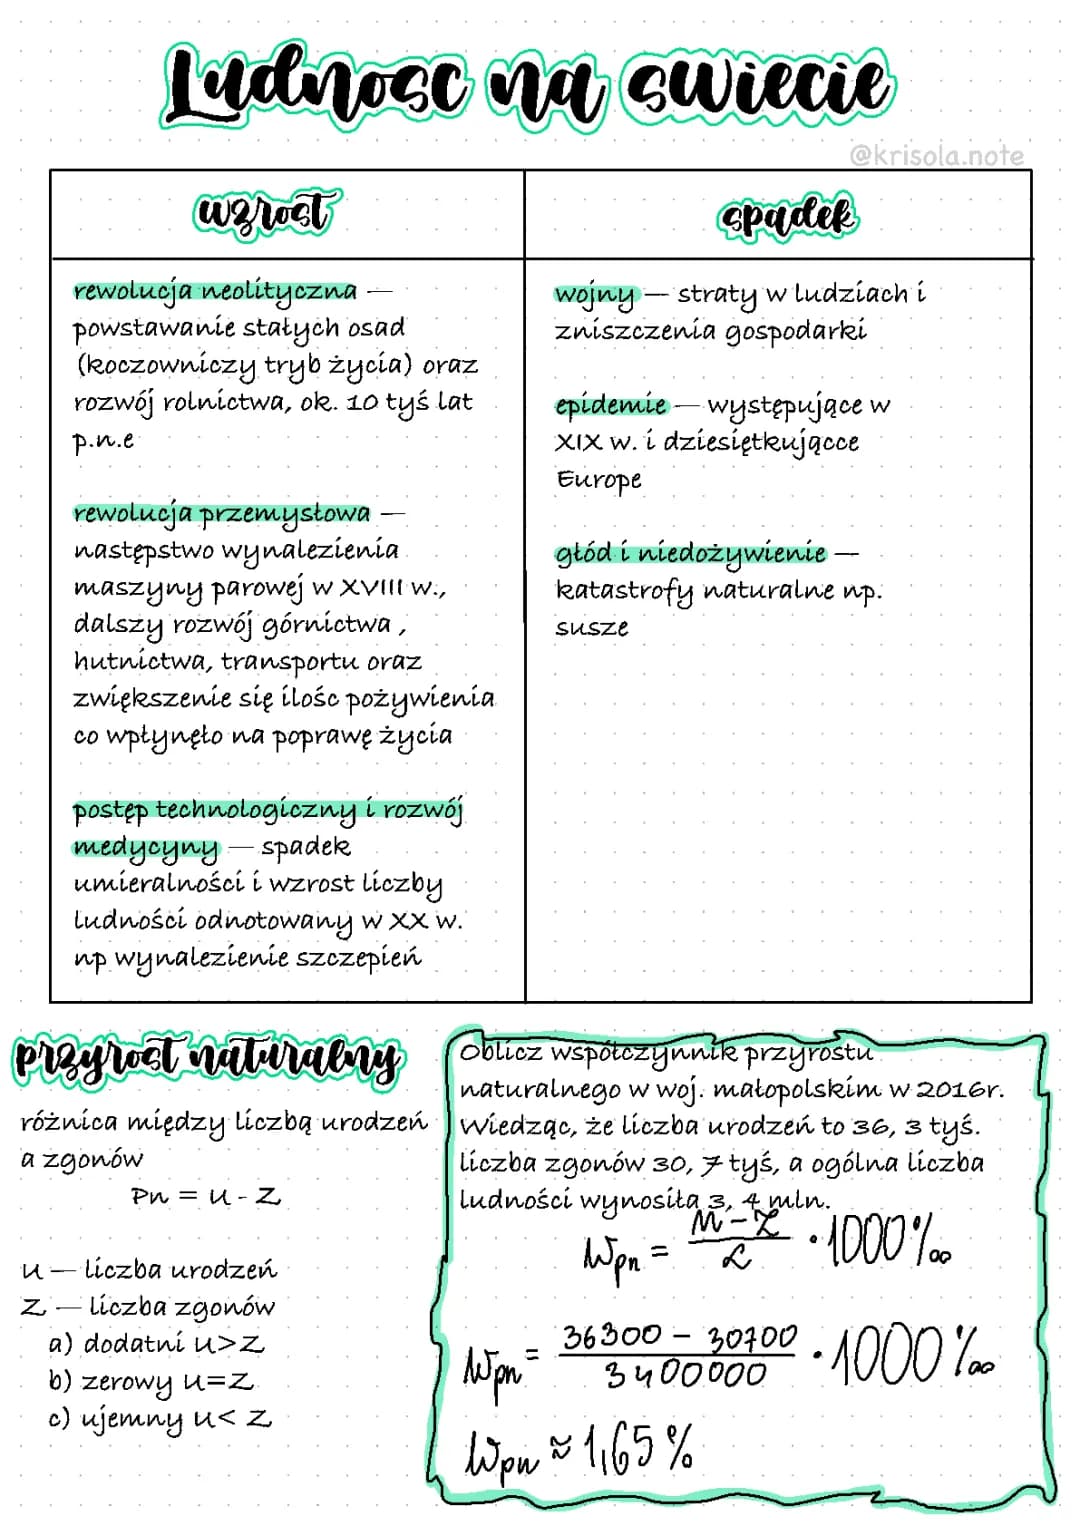 Ludnosc na swiecie
@krisola.note
wzrost
rewolucja neolityczna —
powstawanie stałych osad
(koczowniczy tryb życia) oraz
rozwój rolnictwa, ok. 10 tyś lat
p.n.e
rewolucja przemysłowa —
następstwo wynalezienia
maszyny parowej w XVIII w.,
dalszy rozwój górnictwa ,
hutnictwa, transportu oraz
zwiększenie się ilośc pożywienia
co wpłynęło na poprawę życia
postęp technologiczny i rozwój
medycyny — spadek
umieralności i wzrost liczby
ludności odnotowany w XX w.
np wynalezienie szczepień
spadek
wojny — straty w ludziach i
zniszczenia gospodarki
epidemie — występujące w
XIX w. i dziesiętkującce
Europe
głód i niedożywienie —
katastrofy naturalne np.
susze
przyrost naturalny
różnica między liczbą urodzeń
a zgonów
Pn = u - Z
u — liczba urodzeń
Z — liczba zgonów
a) dodatni u>Z
b) zerowy u=Z
c) ujemny u< Z
Oblicz współczynnik przyrostu
naturalnego w woj. małopolskim w 2016r.
Wiedząc, że liczba urodzeń to 36, 3 tyś.
liczba zgonów 30, 7 tyś, a ogólna liczba
ludności wynosiła 3, 4 mln.
Wpn = M-Z / L · 1000‰
Wpn = 36300 - 30700 / 3400000 · 1000‰
Wpn ≈ 1,65 %